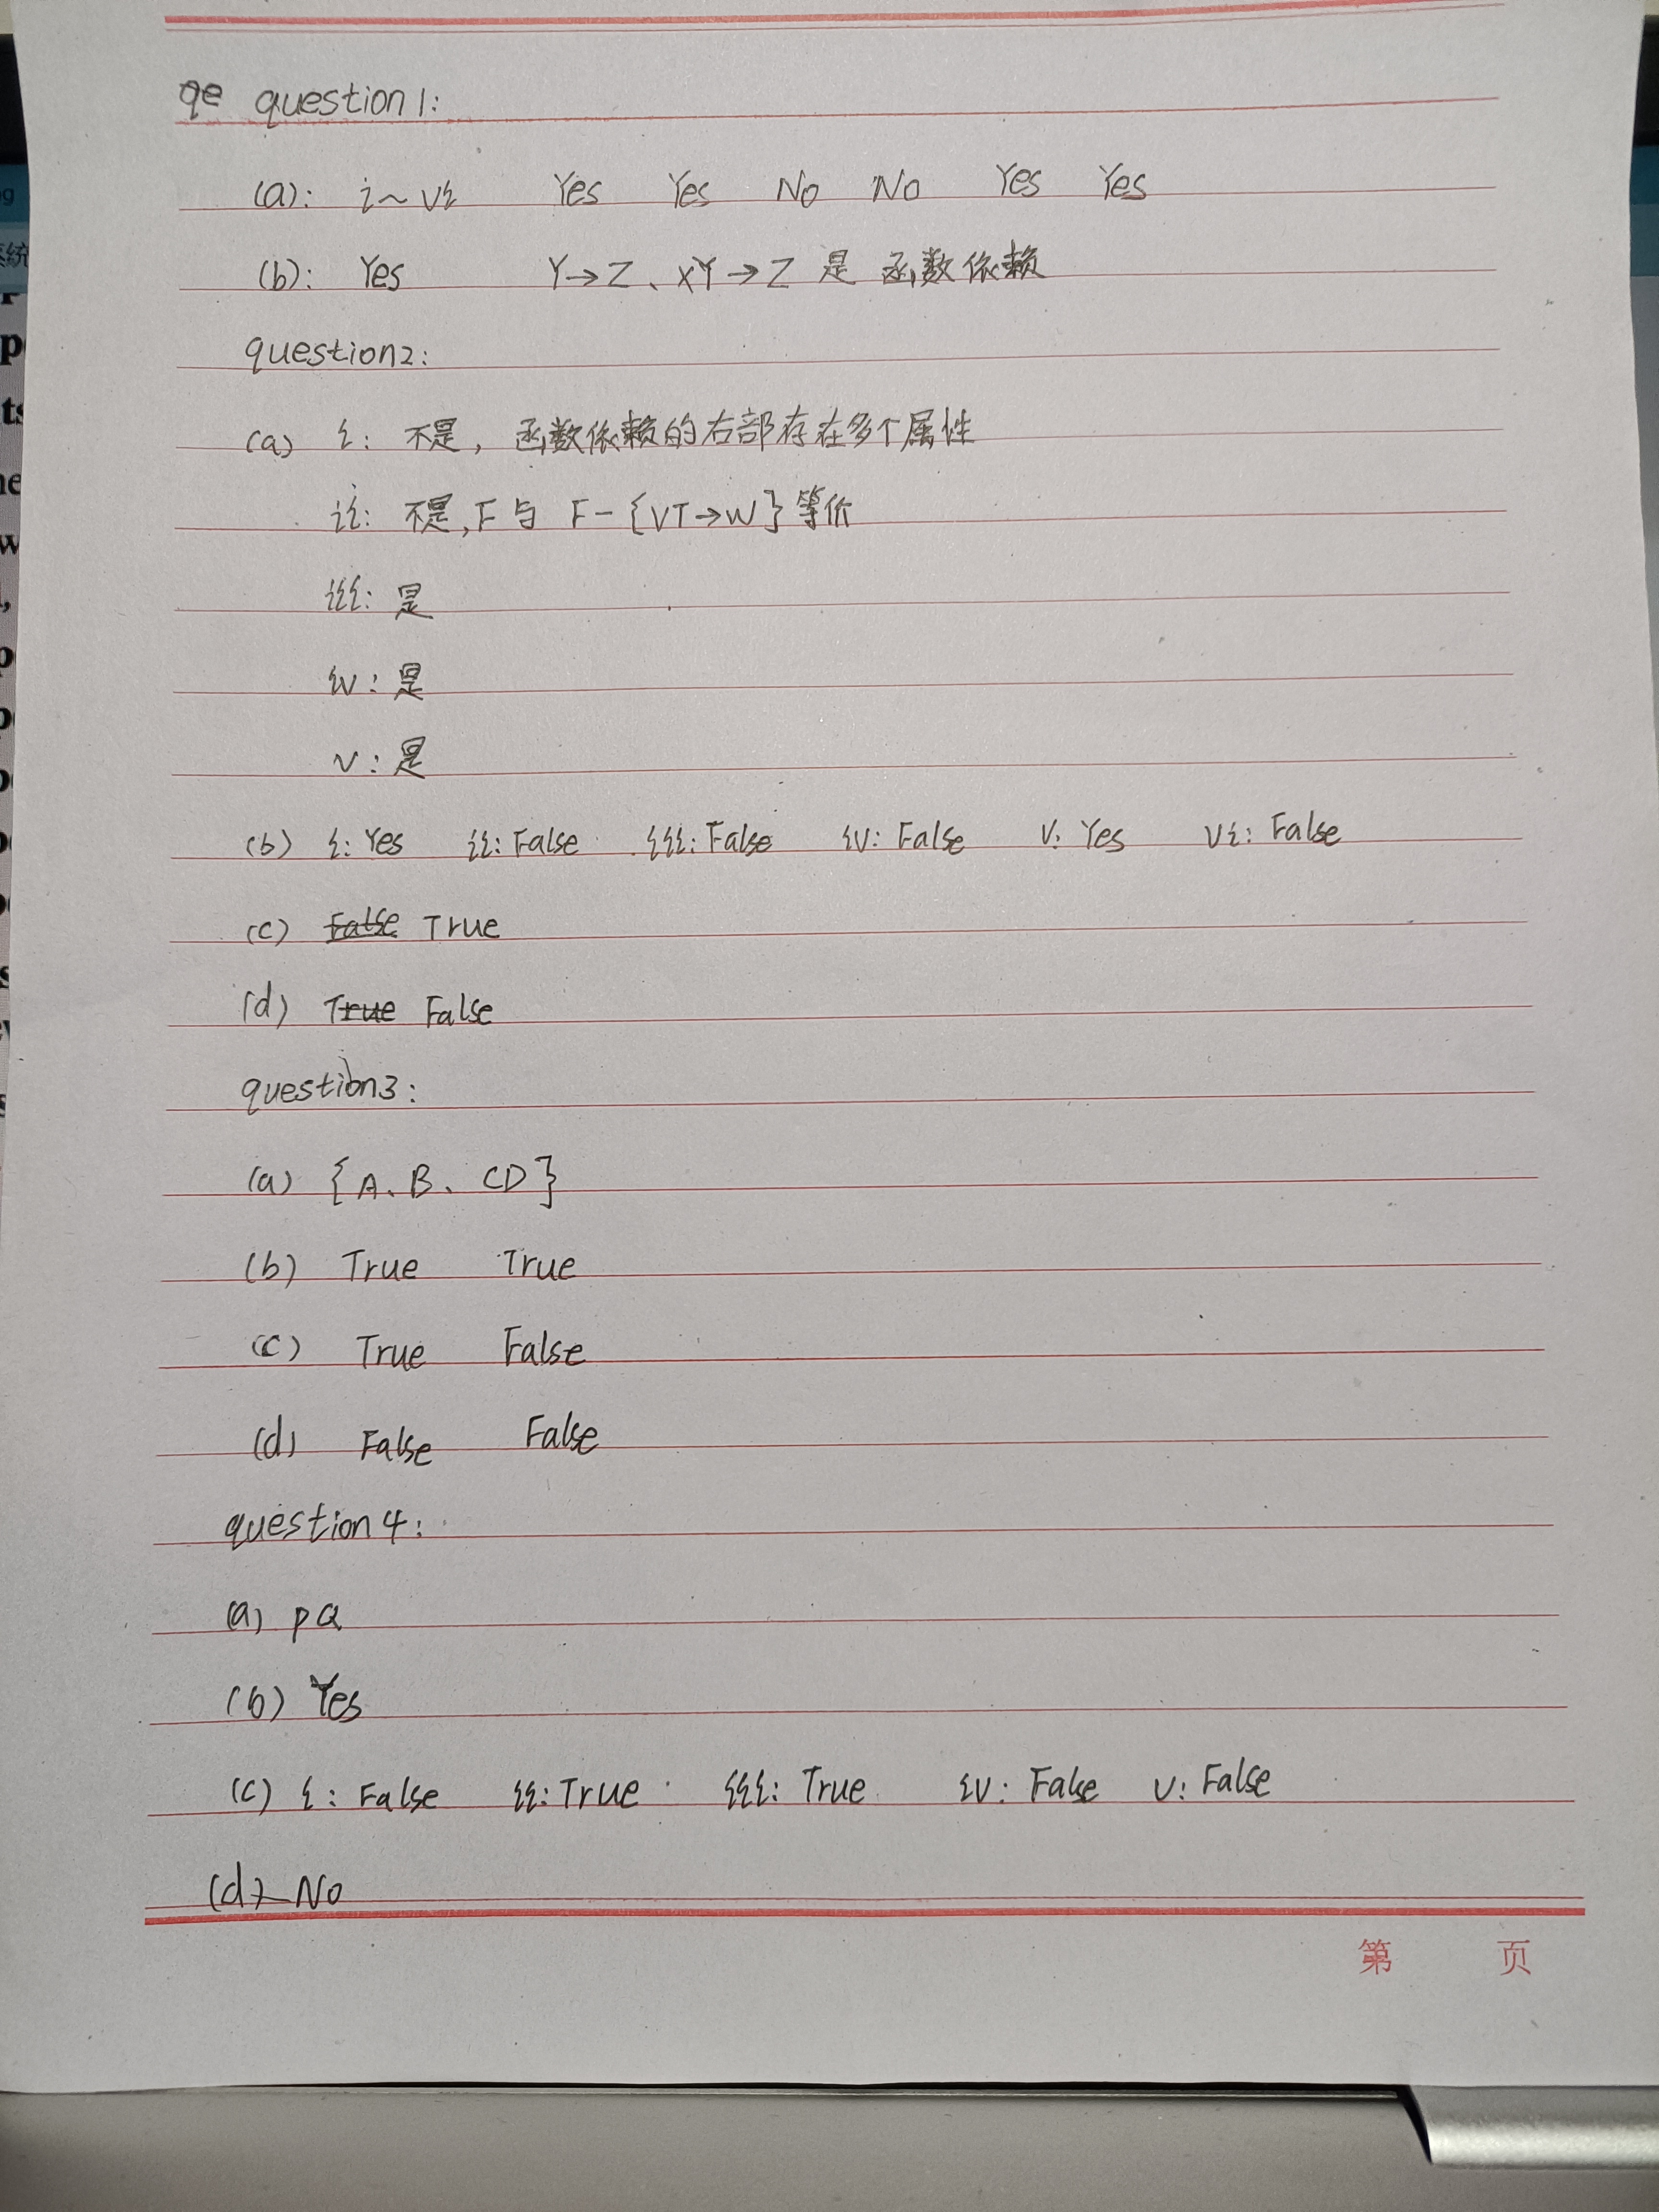 qe question1:
(a): i~vi Yes Yes No No Yes Yes
(b): Yes Y→Z、XY→Z 是 函数依赖
question2:
(a) i: 不是, 函数依赖的右部存在多个属性
ii: 不是,F与 F-{VT→W}等价
iii: 是
iv: 是
v: 是
(b) i: Yes ii: False iii: False iv: False v: Yes vi: False
(c) False True
(d) True False
question3:
(a) {A、B、CD}
(b) True True
(c) True False
(d) False False
question4:
(a) PQ
(b) Yes
(c) i: False ii: True iii: True iv: False v: False
(d) No
第 页